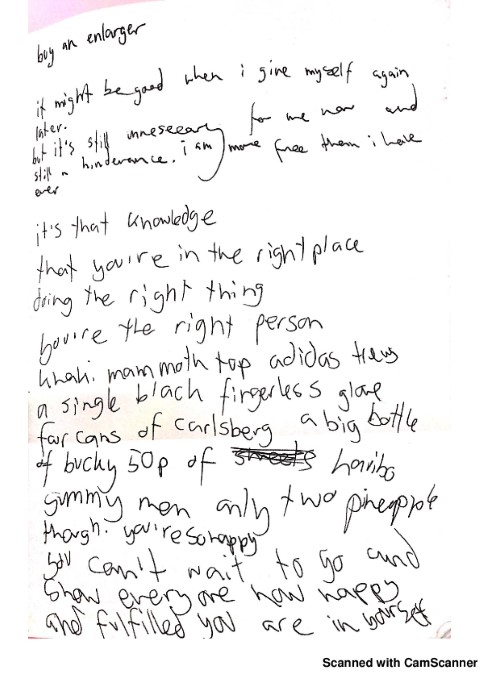 buy an enlarger
it might be good when i give myself again
later.
but it's still unneseeary for me now and
still a hinderance. i am more free them i have
ever
it's that knowledge
that you're in the right place
doing the right thing
you're the right person
khaki. mammoth top adidas trews
a single black fingerless glove
four cans of carlsberg a big bottle
of bucky 50p of haribo
gummy men only two pineapple
though. you're so happy
you can't wait to go and
show everyone how happy
and fulfilled you are in yourself
Scanned with CamScanner